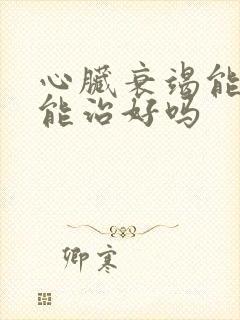 心臟衰竭能
能治好吗
卿寒